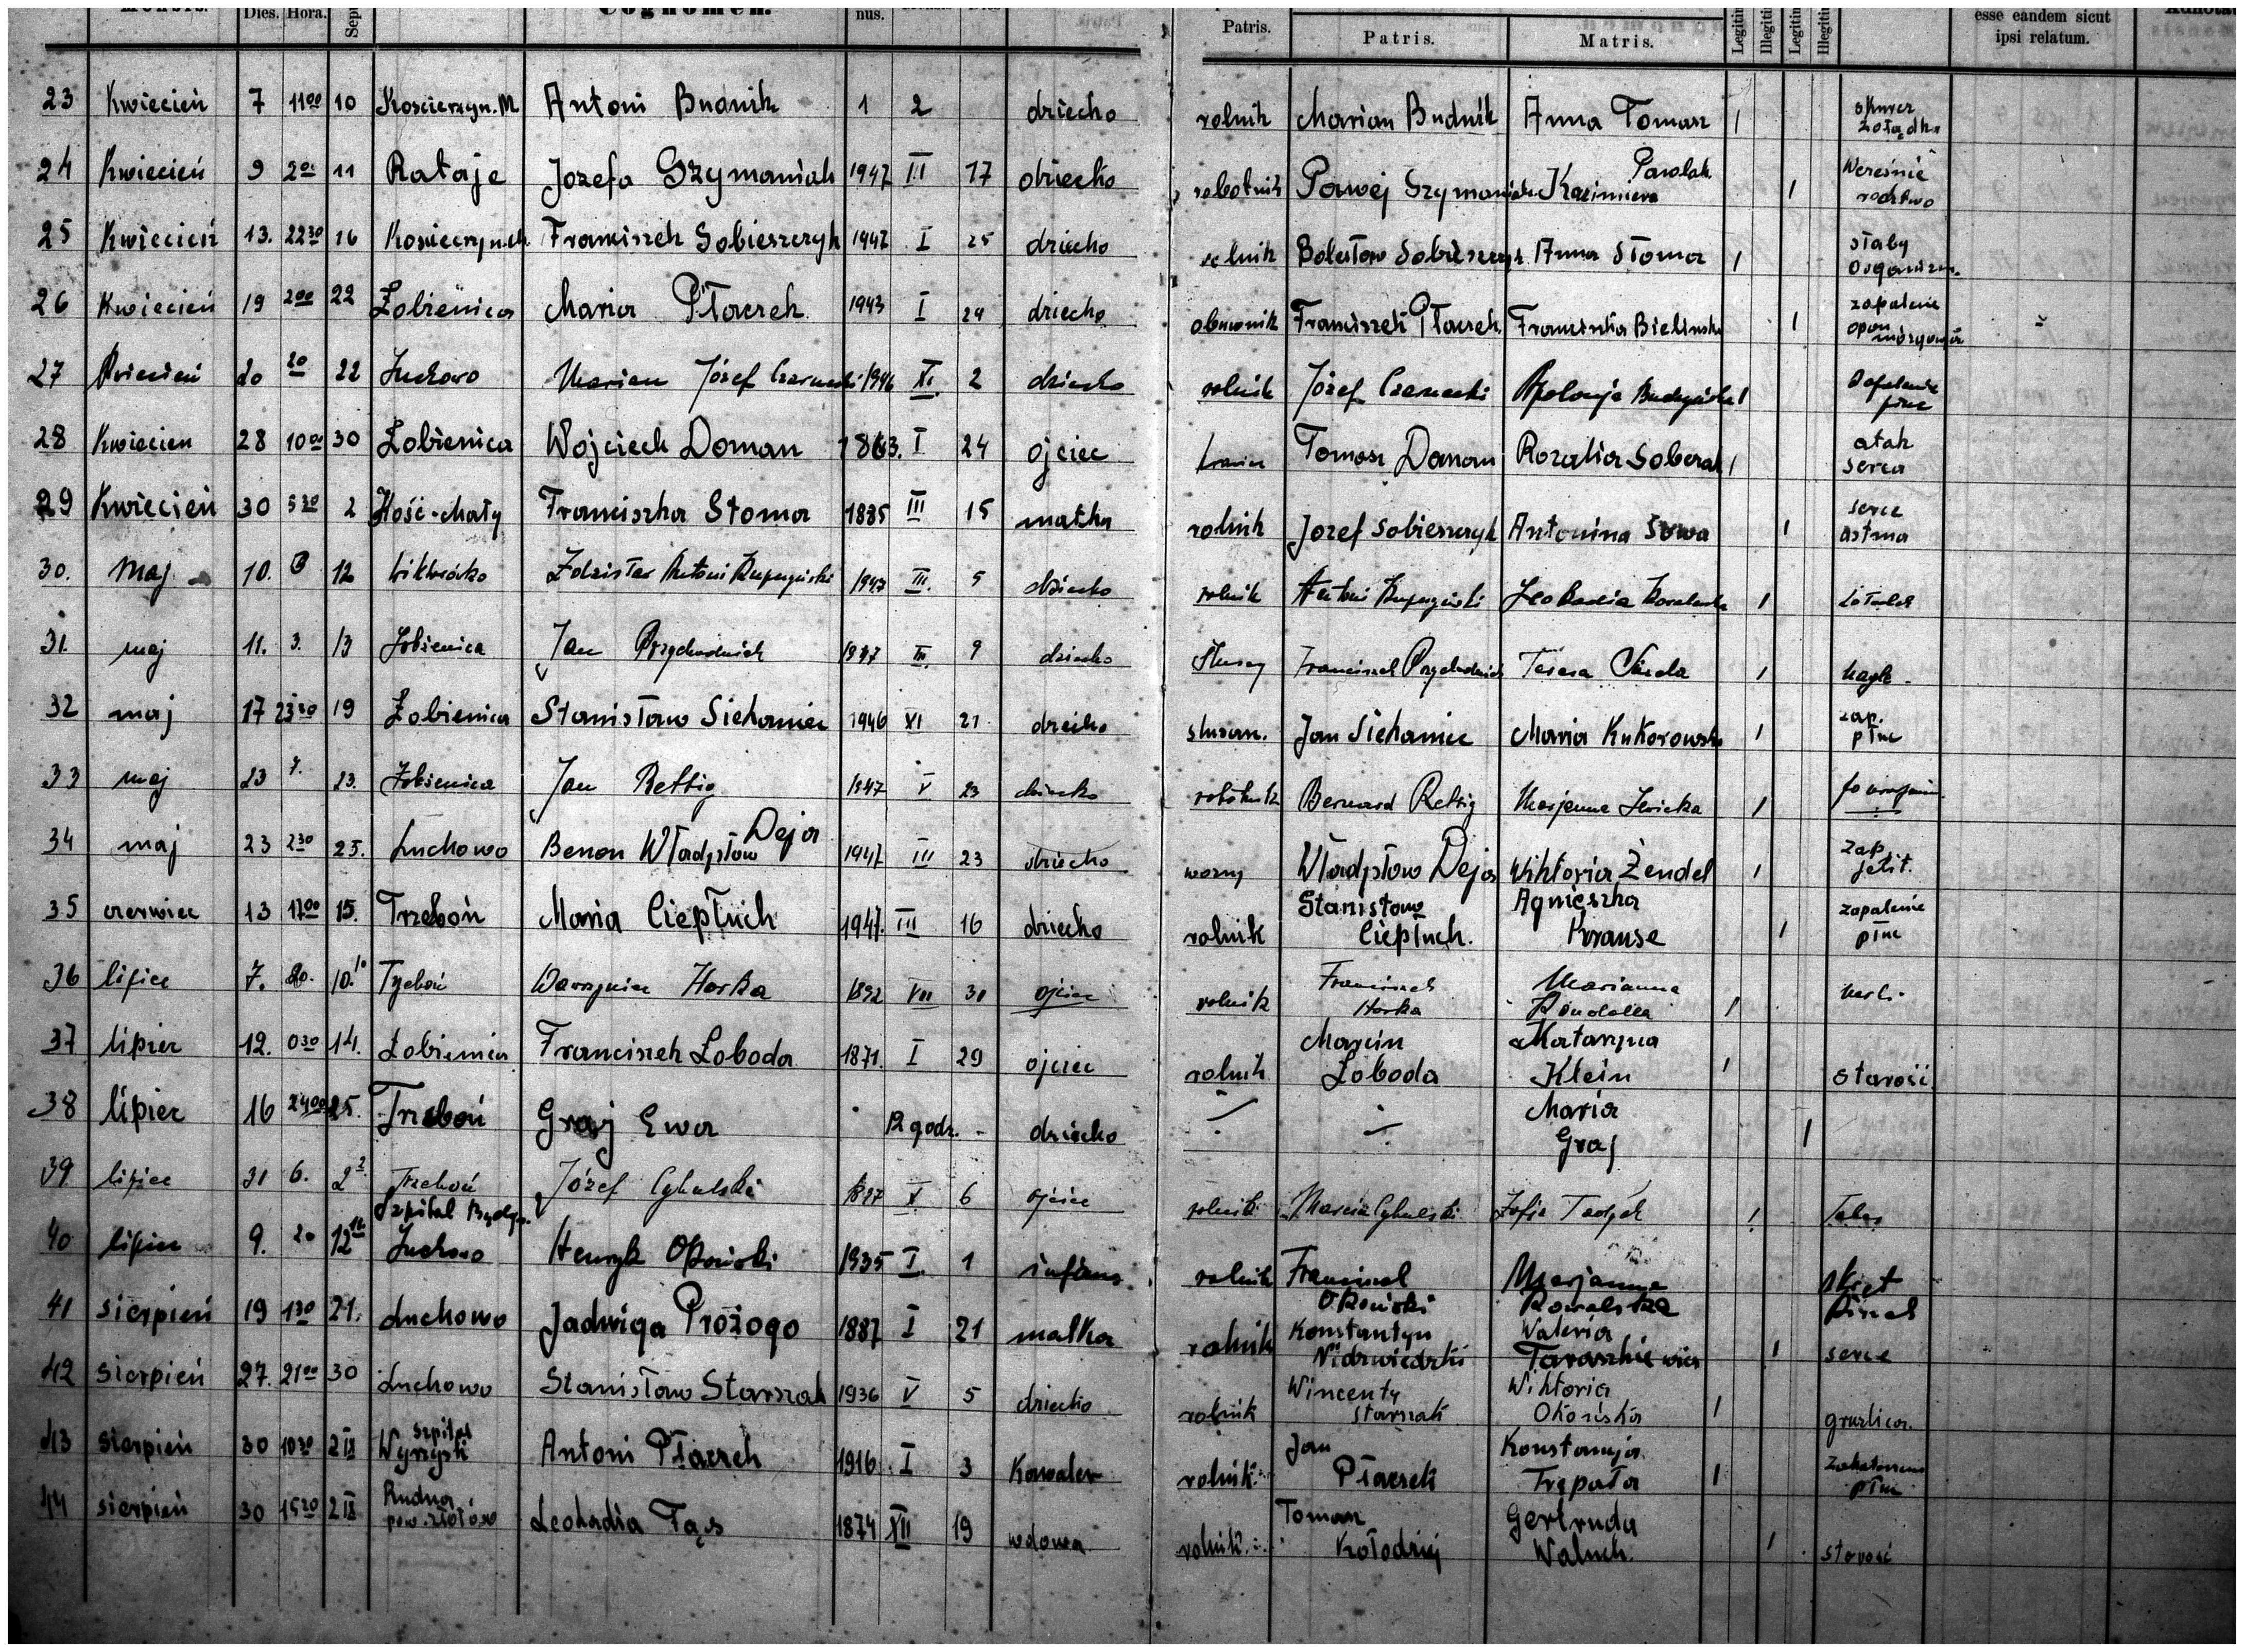 Mensis. Dies. Hora. Sepu Cognomen. nus. Mensis Dies Patris. Patris. Matris. Legitim Illegitim Legitim Illegitim esse eandem sicut ipsi relatum. Adnotat
23 Kwiecień 7 11 00 10 Kościerzyn. M Antoni Budnik 1 2 dziecko rolnik Marian Budnik Anna Tomasz / skurcz żołądka
24 Kwiecień 9 2 11 Rataje Jozefa Szymaniak 1947 III 17 dziecko robotnik Paweł Szymaniak Kazimiera Pawlak / Wcześnie rodztwo
25 Kwiecień 13. 22 30 16 Franciszek Sobieszczyk 1947 I 25 dziecko rolnik Bolesław Sobieszczyk Anna Słoma / słaby organizm.
26 Kwiecień 19 2 00 22 Łobżenica Maria Płaczek 1943 I 24 dziecko Franciszek Płaczek Franciszka Bielinska / zapalenie opon mózgowych
27 Kwiecień 20 20 22 Luchowo Marian Józef Czarnecki 1946 XI. 2 dziecko rolnik Józef Czarnecki Apolonja / Zapalenie płuc
28 Kwiecien 28 10 00 30 Łobżenica Wojciech Doman 1863. I 24 ojciec Tomasz Doman Rozalia Soberak / atak serca
29 Kwiecień 30 5 30 2 Kość-Mały Franciszka Słoma 1885 III 15 matka rolnik Jozef Sobieszczyk Antonina Sowa / serce astma
30. Maj 10. 12 Wiktorówko Zdzisław Antoni 1947 III. 5 dziecko rolnik Antoni Leokadia Kowalska /
31. maj 11. 3. 13 Łobżenica Jan Przychodniak 1947 9 dziecko Franciszek Przychodniak Teresa /
32 maj 17 23 30 19 Łobżenica Stanisław Siekaniec 1946 XI 21 dziecko slusarz. Jan Siekaniec Maria Kukorowska / zap. płuc
33 maj 23 7. 23. Łobżenica Jan Rettig 1947 V 23 dziecko robotnik Bernard Rettig Marjanna /
34 maj 23 2 30 25. Luchowo Benon Władysław Deja 1947 III 23 dziecko woźny Władysław Deja Wiktoria Żendel / zap. jelit.
35 czerwiec 13 17 00 15. Trzeboń Maria Ciepłuch 1947. III 16 dziecko rolnik Stanisław Ciepłuch. Agnieszka Krause / zapalenie płuc
36 lipiec 7. 20. 10. Wawrzyniec Horka 1892 VII 30 ojciec rolnik Franciszek Horka Marianna /
37 lipiec 12. 0 30 14. Łobżenica Franciszek Łoboda 1871. I 29 ojciec rolnik Marcin Łoboda Katarzyna Klein / starość
38 lipiec 16 24 00 25. Trzeboń Graj Ewa 12 godz. - dziecko Maria Graj /
39 lipiec 31 6. 2 Trzeboń Józef Cybulski 1897 X 6 ojciec rolnik Marcin Cybulski Zofia /
40 lipiec 9. 20 12 Szpital Bydg. Luchowo Henryk Okoński 1935 I. 1 infans rolnik Franciszek Okoński Marjanna Kowalska skręt kiszek
41 sierpień 19 1 30 21. Luchowo Jadwiga Prożogo 1887 I 21 matka rolnik Konstantyn Waleria Taraszkiewicz / serce
42 sierpień 27. 21 00 30 Luchowo Stanisław Starszak 1936 V 5 dziecko rolnik Wincenty Starszak Wiktoria Okońska / gruźlica.
43 sierpień 30 10 30 2 IX szpital Wyrzysk Antoni Płaczek 1916 I 3 Kawaler rolnik Jan Płaczek Konstancja Trepała / płuc
44 sierpień 30 15 20 2 IX Rudna pow. złotów Leokadia Tącs 1874 XII 19 wdowa rolnik Tomasz Kołodziej Gertruda Waluch. / starość